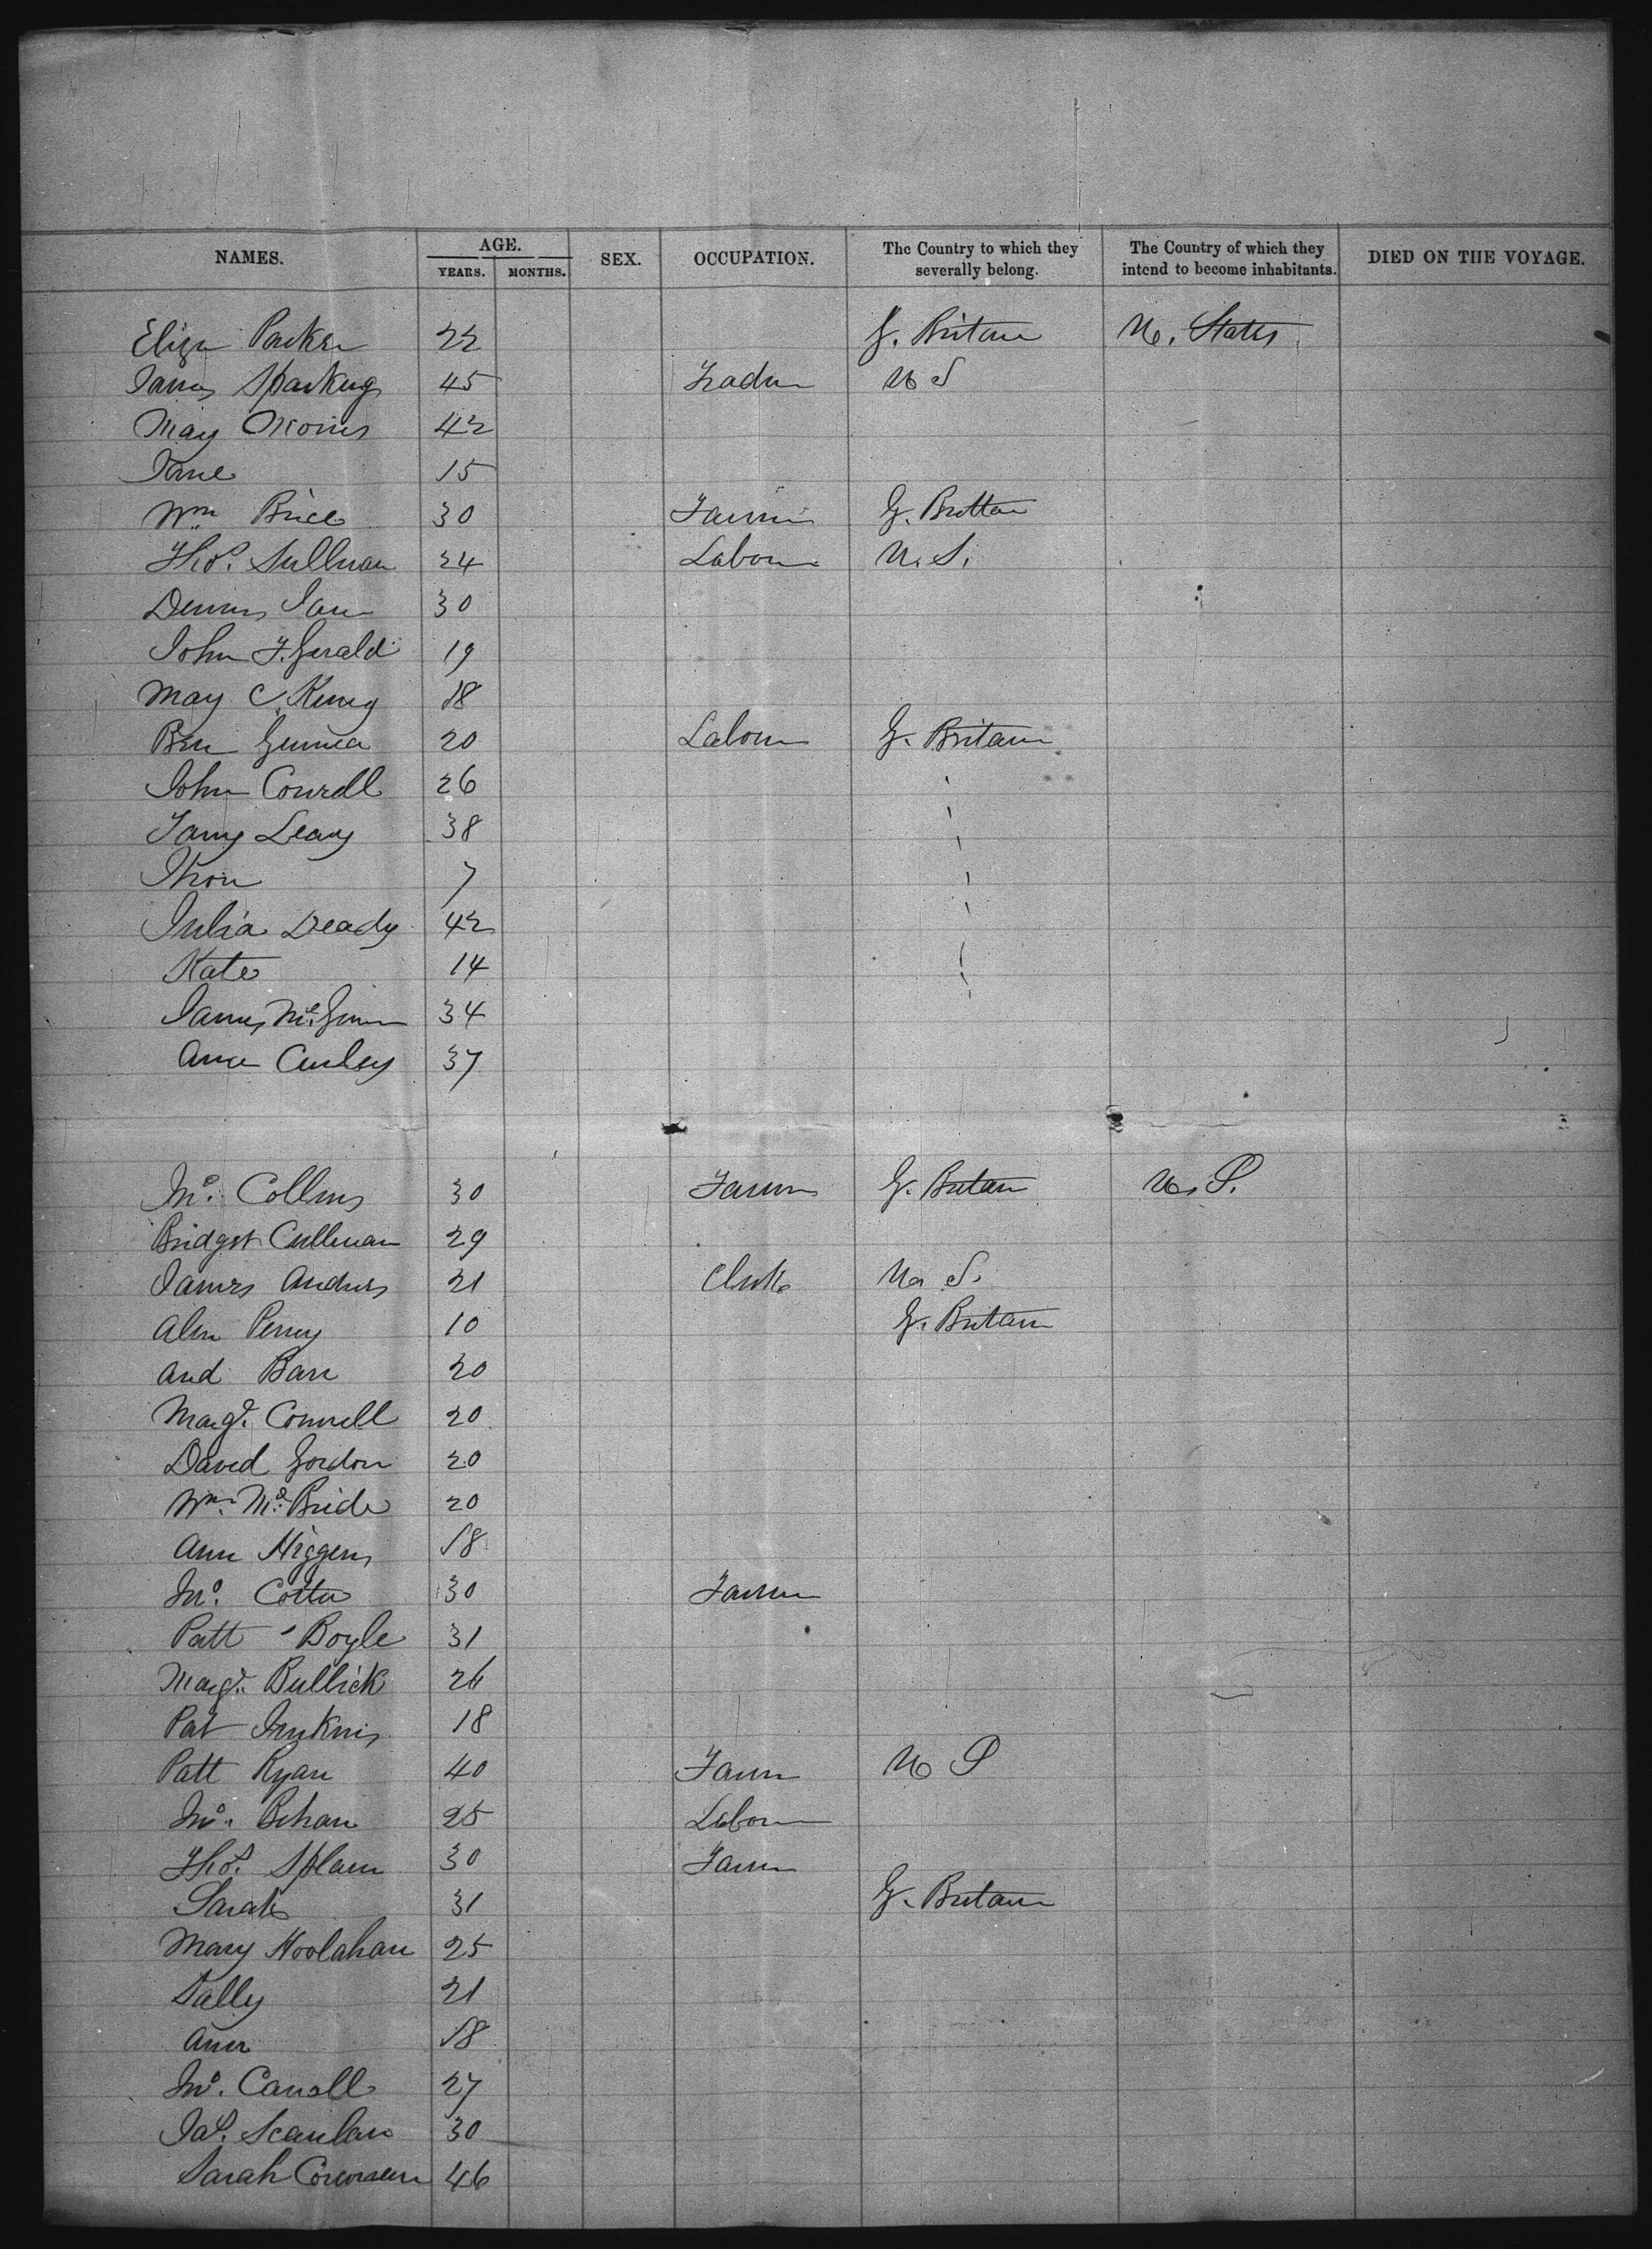 NAMES. AGE. SEX. OCCUPATION. The Country to which they severally belong. The Country of which they intend to become inhabitants. DIED ON THE VOYAGE.
YEARS. MONTHS.
Eliza Parker 22 G. Britain U. States
James Sparking 45 U S
May Morris 42
Jane 15
Wm Price 30 Farmer G. Britain
Thos. Sullivan 24 Labour U. S.
Dennis 30
John F. Gerald 19
May C. King 18
Ben 20 Labour G. Britain
John Conrell 26
James Leary 38
Thon 7
Julia Deady 42
Kate 14
James McGinn 34
Ann Curley 37
Jno. Collins 30 Farmer G. Britain U. S.
Bridget Cullinan 29
James Andrews 21 Clerk U. S.
Alen Perry 10 G. Britain
And Barr 20
Magt. Connell 20
David Gordon 20
Wm. McBride 20
Ann Higgens 18
Jno. Cotter 30 Farmer
Patt Boyle 31
Magt. Bullick 26
Pat Jenkins 18
Patt Ryan 40 Farm U S
Jno. Behan 25 Labour
Thos. Splain 30 Farm
Sarah 31 G. Britain
Mary Hoolahan 25
Sally 21
Ann 18
Jno. Carroll 27
Jas. Scanlan 30
Sarah Corcoran 46